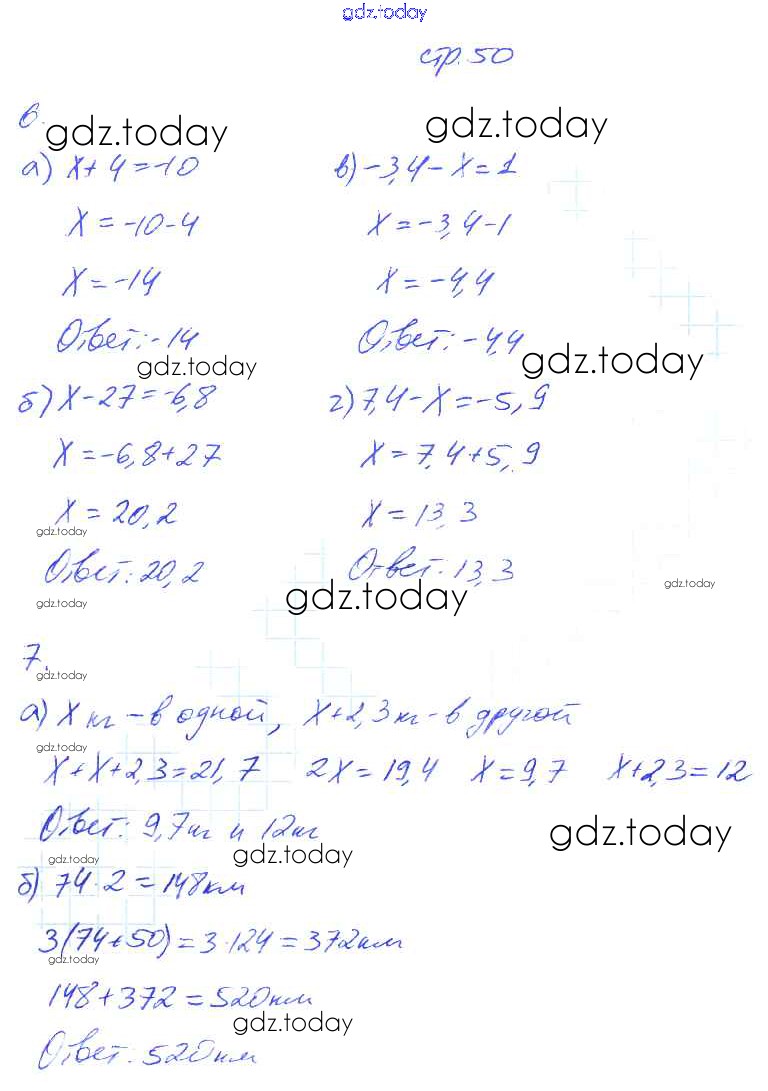 gdz.today
стр. 50
6.
gdz.today gdz.today
а) x + 4 = -10
x = -10 - 4
x = -14
Ответ: -14
gdz.today
б) x - 27 = -6,8
x = -6,8 + 27
x = 20,2
gdz.today
Ответ: 20,2
gdz.today
в) -3,4 - x = 1
x = -3,4 - 1
x = -4,4
Ответ: -4,4
gdz.today
г) 7,4 - x = -5,9
x = 7,4 + 5,9
x = 13,3
Ответ: 13,3
gdz.today
gdz.today
7.
gdz.today
а) x кг - в одной, x + 2,3 кг - в другой
gdz.today
x + x + 2,3 = 21,7 2x = 19,4 x = 9,7 x + 2,3 = 12
Ответ: 9,7 кг и 12 кг
gdz.today
gdz.today gdz.today
б) 74 · 2 = 148 км
3(74 + 50) = 3 · 124 = 372 км
gdz.today
148 + 372 = 520 км
gdz.today
Ответ: 520 км